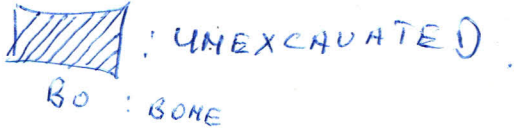 : UNEXCAVATED.
BO : BONE